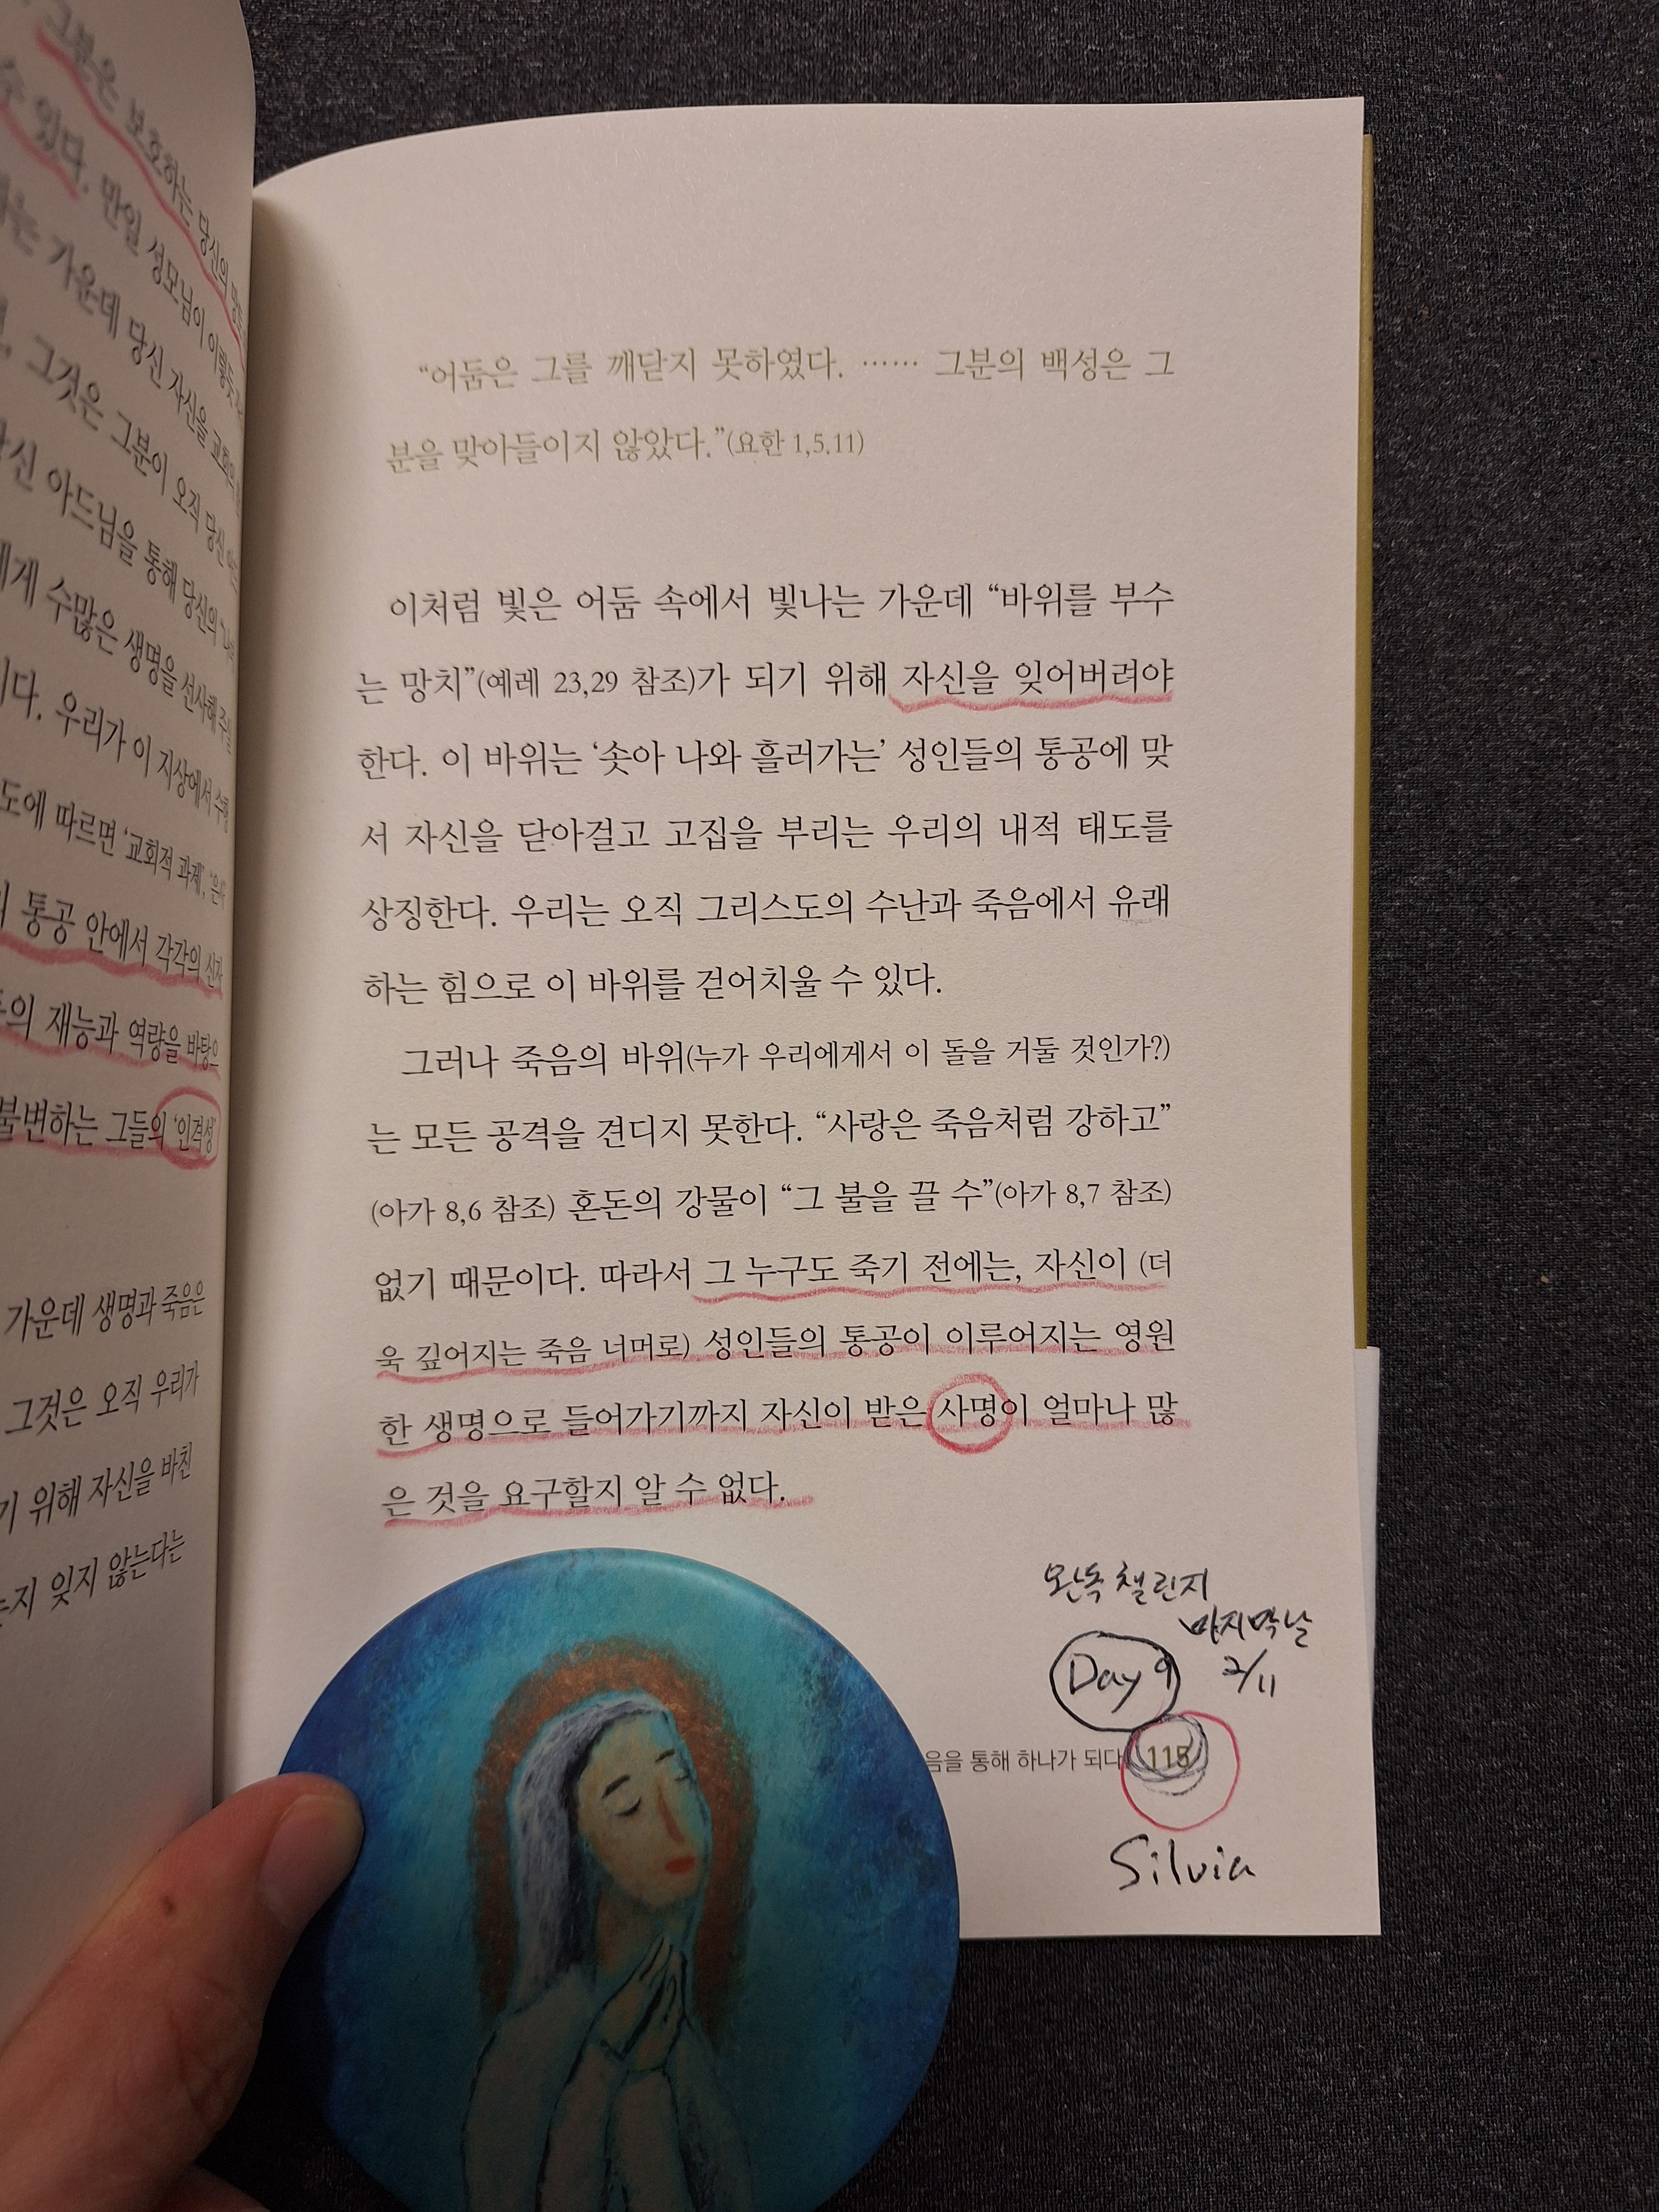 그분은 보호하는 당신의
수 있다. 만일 성모님이 이렇듯
는 가운데 당신 자신을 교회의
그것은 그분이 오직 당신
당신 아드님을 통해 당신의
에게 수많은 생명을 선사해 주실
이다. 우리가 이 지상에서 수행
도에 따르면 ‘교회적 과제’,
의 통공 안에서 각각의 신자
의 재능과 역량을 바탕으
불변하는 그들의 ‘인격성’
가운데 생명과 죽음은
그것은 오직 우리가
기 위해 자신을 바친
는지 잊지 않는다는
“어둠은 그를 깨닫지 못하였다. …… 그분의 백성은 그
분을 맞아들이지 않았다.”(요한 1,5.11)
이처럼 빛은 어둠 속에서 빛나는 가운데 “바위를 부수
는 망치”(예레 23,29 참조)가 되기 위해 자신을 잊어버려야
한다. 이 바위는 ‘솟아 나와 흘러가는’ 성인들의 통공에 맞
서 자신을 닫아걸고 고집을 부리는 우리의 내적 태도를
상징한다. 우리는 오직 그리스도의 수난과 죽음에서 유래
하는 힘으로 이 바위를 걷어치울 수 있다.
그러나 죽음의 바위(누가 우리에게서 이 돌을 거둘 것인가?)
는 모든 공격을 견디지 못한다. “사랑은 죽음처럼 강하고”
(아가 8,6 참조) 혼돈의 강물이 “그 불을 끌 수”(아가 8,7 참조)
없기 때문이다. 따라서 그 누구도 죽기 전에는, 자신이 (더
욱 깊어지는 죽음 너머로) 성인들의 통공이 이루어지는 영원
한 생명으로 들어가기까지 자신이 받은 사명이 얼마나 많
은 것을 요구할지 알 수 없다.
완독 챌린지
마지막날
Day 9 2/11
음을 통해 하나가 되다 115
Silvia